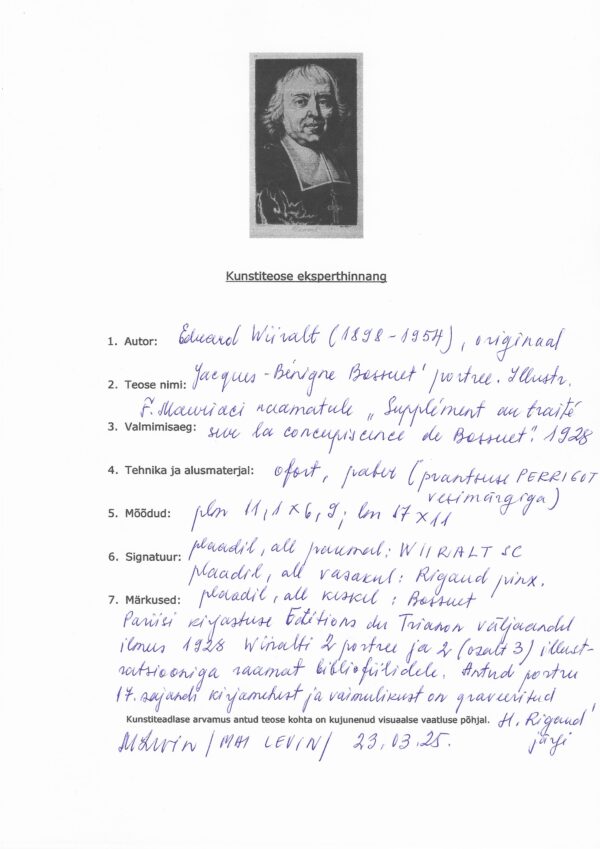 Kunstiteose eksperthinnang
1. Autor: Eduard Wiiralt (1898-1954), originaal
2. Teose nimi: Jacques-Bénigne Bossuet' portree. Illustr.
F. Mauriaci raamatule „Supplément au traité
3. Valmimisaeg: sur la concupiscence de Bossuet". 1928
4. Tehnika ja alusmaterjal: ofort, paber (prantsuse PERRIGOT
vesimärgiga)
5. Mõõdud: plm 11,1 x 6,9; lm 17 x 11
6. Signatuur: plaadil, all paremal: WIIRALT SC
plaadil, all vasakul: Rigaud pinx.
7. Märkused: plaadil, all keskel: Bossuet
Pariisi kirjastuse Editions du Trianon väljaandel
ilmus 1928 Wiiralti 2 portree ja 2 (osalt 3) illust-
ratsiooniga raamat bibliofiilidele. Antud portree
17. sajandi kirjamehest ja vaimulikust on graveeritud
Kunstiteadlase arvamus antud teose kohta on kujunenud visuaalse vaatluse põhjal. H. Rigaud'
MLevin /MAI LEVIN/ 23.03.25. järgi